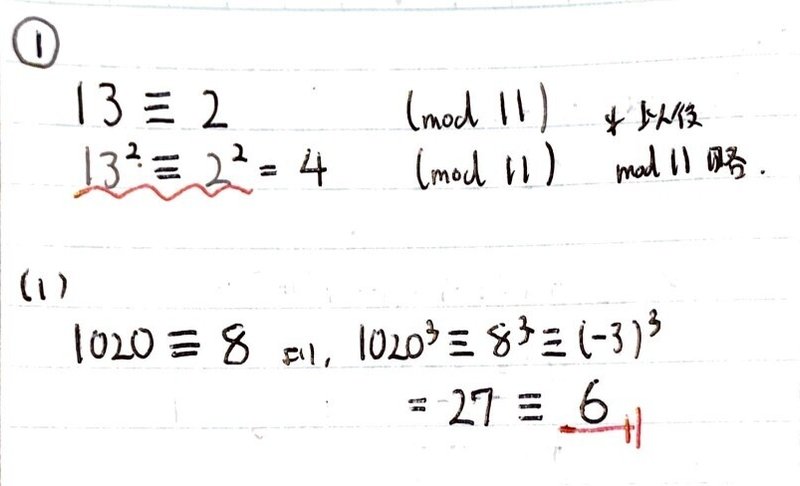 ①
13 ≡ 2 (mod 11) * 以後
13² ≡ 2² = 4 (mod 11) mod 11 略.
(1)
1020 ≡ 8 より, 1020³ ≡ 8³ ≡ (-3)³
= 27 ≡ 6